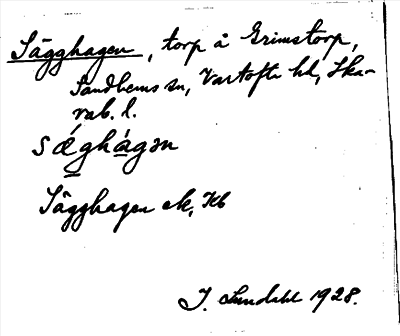 Sägghagen, torp å Grimstorp,
Sandhems sn, Vartofta hd, Ska-
rab. l.
sǽghágən
Sägghagen ek, Kb
I. Lundahl 1928.